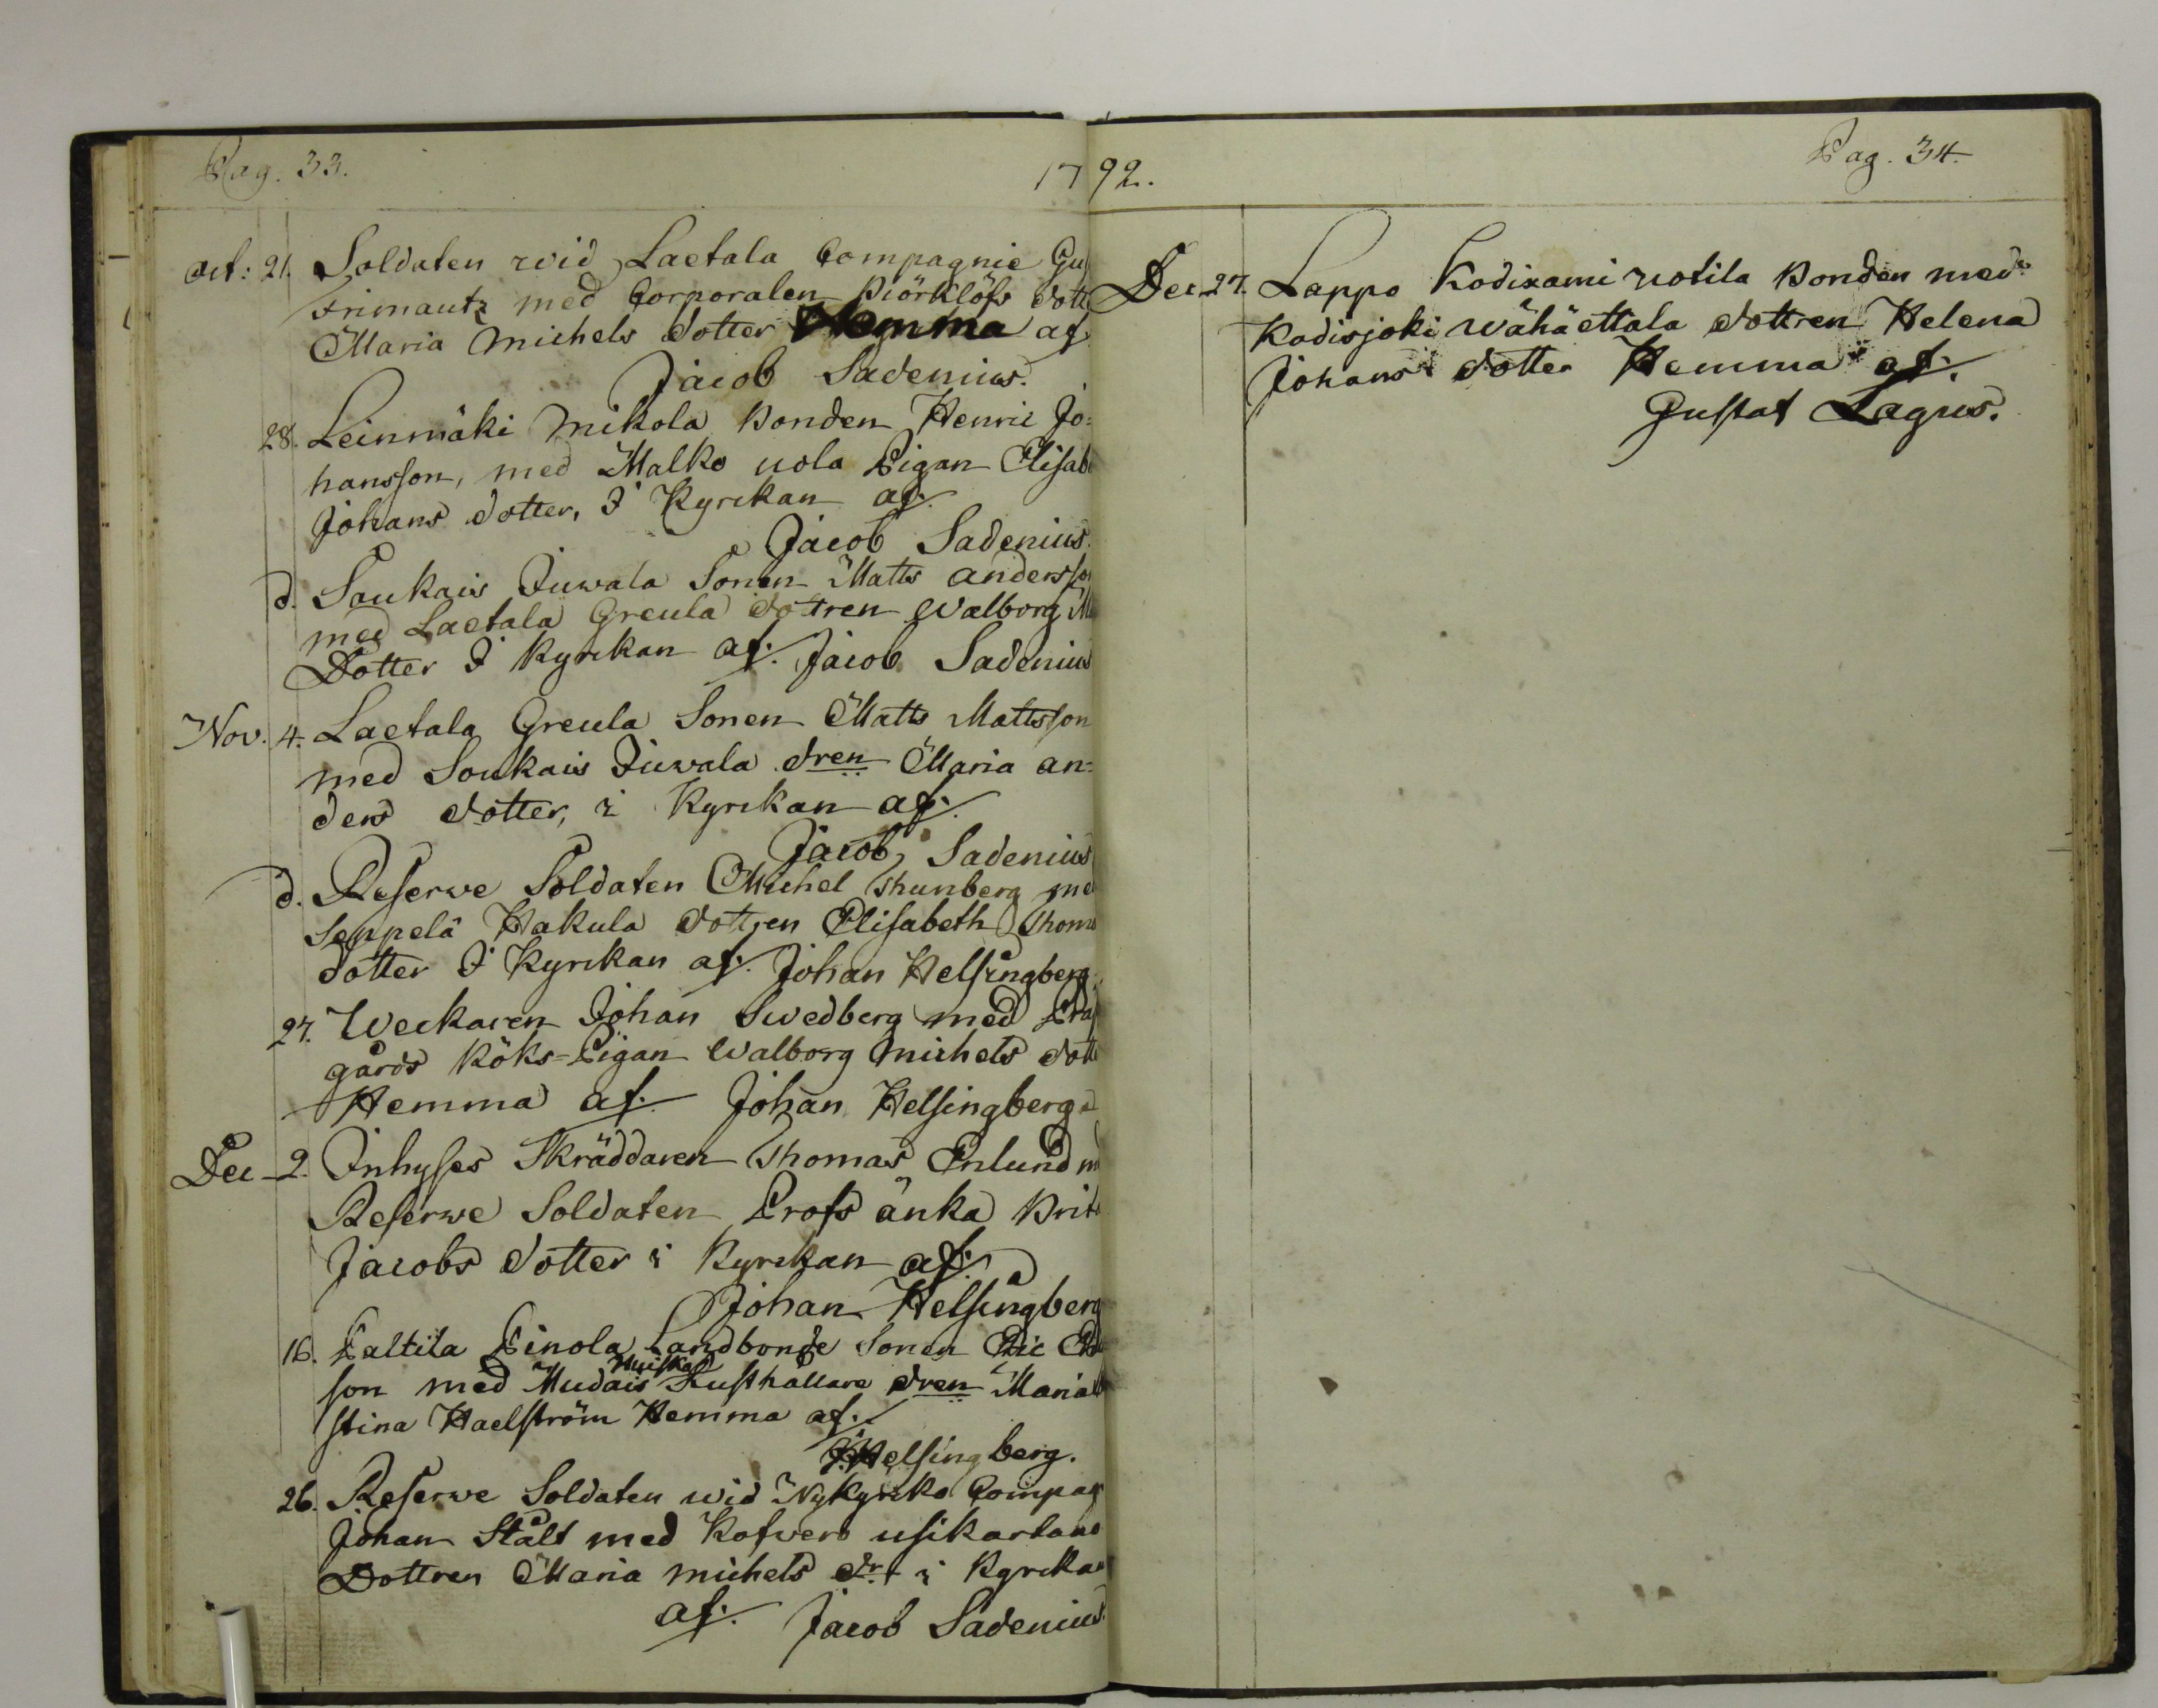 Pag. 33.
1792.
Oct: 21. Soldaten wid Laetala Compagnie Gus
Frimautz med Corporalen Biörklöfs dott
Maria Michels dotter Hemma af
Jacob Sadenius.
28. Leinmäki Mikola Bonden Henric Jo=
hansson, med Malko uola Pigan Elisab
Johans dotter, I Kyrckan af.
Jacob Sadenius.
d. Soukais Juwala Sonen Matts andersson
med Laetala Greula dottren Walborg M
Dotter I Kyrckan af. Jacob Sadenius
Nov. 4. Laetala Greula Sonen Matts Mattsson
med Soukais Juwala dren Maria an=
ders dotter, i Kyrckan af.
Jacob Sadenius
d. Reserwe Soldaten Michel Thunberg me
Seppelä Hakula dottren Elisabeth Thoms
dotter I Kyrckan af. Johan Helsingberg.
27. Weckaren Johan Swedberg med Prä
gårds köks=Pigan Walborg Michels dott
Hemma af. Johan Helsingberg
Dec 2. Inhyses Skräddaren Thomas Enlund m
Reserwe Soldaten Profs änka Brit
Jacobs dotter i Kyrckan af.
Johan Helsingberg
16. Paltila Pinola Landbonde Sonen Eric
son med Mudais Huiskas Rusthållare dren Maria
stina Haelström Hemma af.
J. Helsingberg.
26. Reserwe Soldaten wid Nykyrko Compag
Johan Stålt med Kofvero usikartano
Dottren Maria Michels dr i Kyrcka
af. Jacob Sadenius.
Pag. 34.
Dec 27. Lappo Kodixami uotila Bonden med
Kodisjoki wähäettala dottren Helena
Johans dotter Hemma af.
Gustaf Lagus.